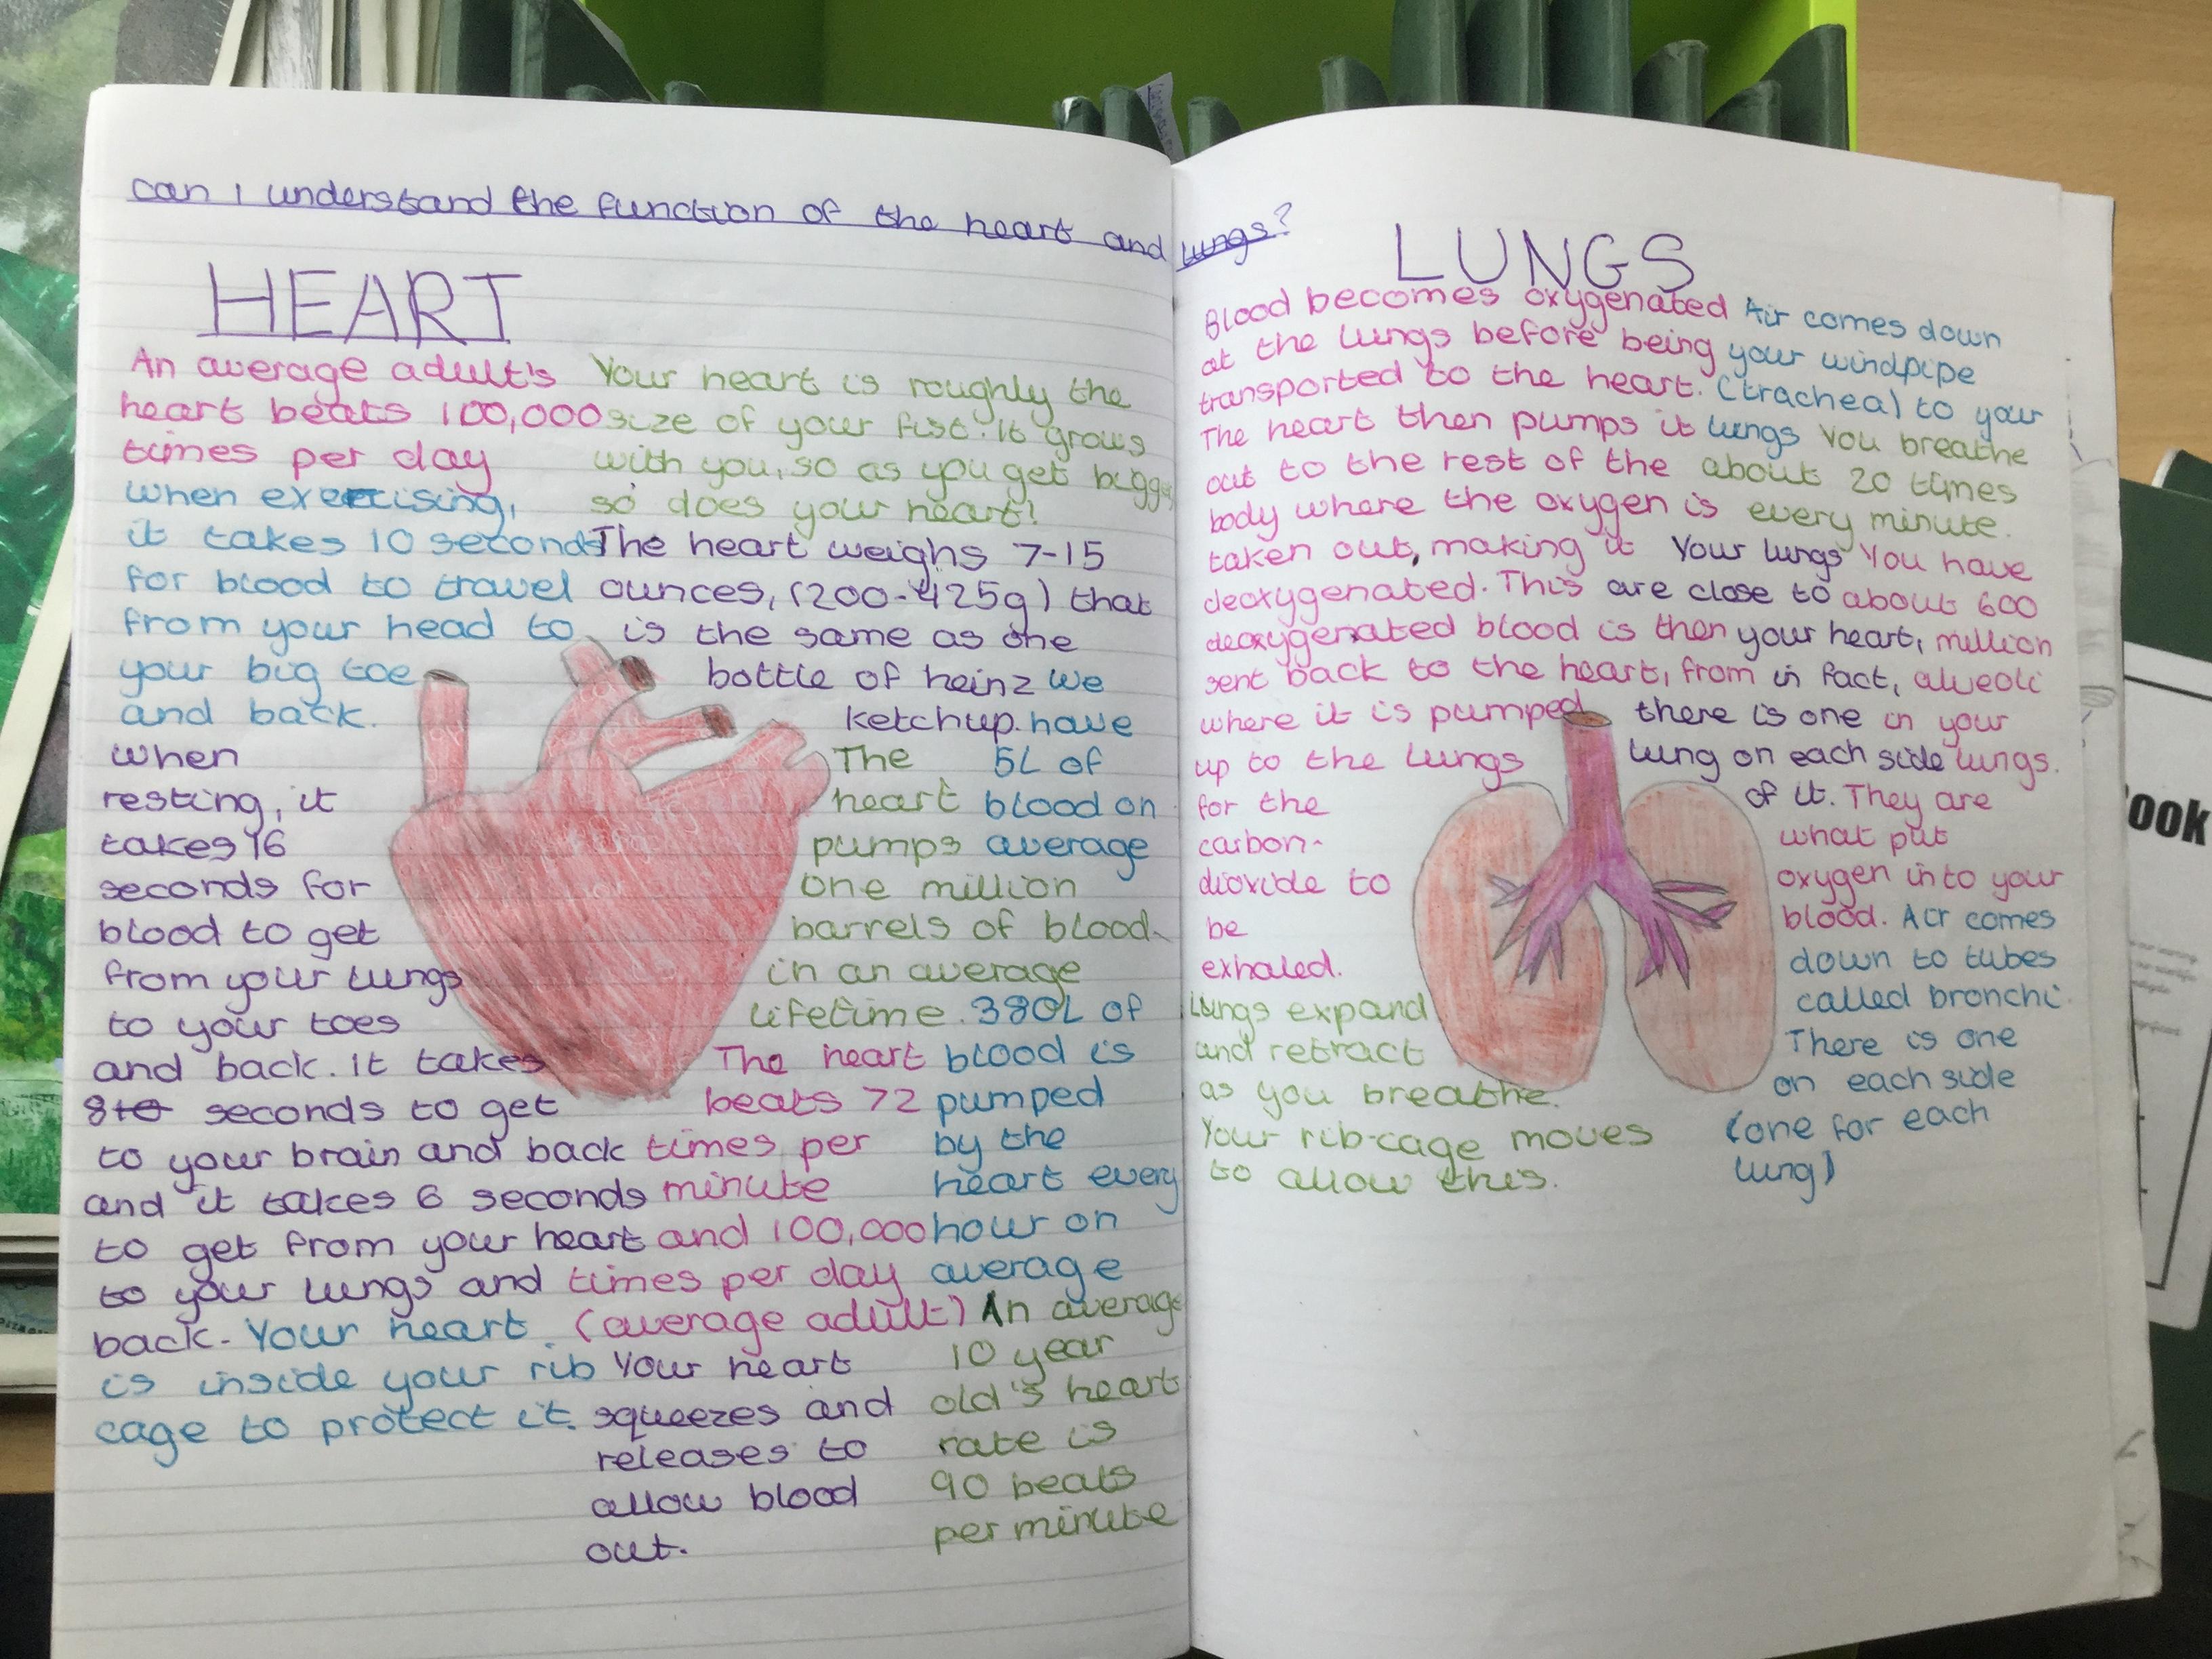 can I understand the function of the heart and lungs?
HEART
An average adult's
heart beats 100,000
times per day
when exercising,
it takes 10 seconds
for blood to travel
from your head to
your big toe
and back.
when
resting, it
takes 16
seconds for
blood to get
from your lungs
to your toes
and back. It takes
8 seconds to get
to your brain and back
and it takes 6 seconds
to get from your heart
to your lungs and
back. Your heart
is inside your rib
cage to protect it.
Your heart is roughly the
size of your fist. It grows
with you, so as you get bigger,
so does your heart!
The heart weighs 7-15
ounces, (200-425g) that
is the same as one
bottle of heinz
ketchup.
we
have
5L of
blood on
average
The
heart
pumps
one million
barrels of blood
in an average
lifetime.
380L of
blood is
pumped
by the
heart every
hour on
average
The heart
beats 72
times per
minute
and 100,000
times per day
(average adult)
Your heart
squeezes and
releases to
allow blood
out.
An average
10 year
old's heart
rate is
90 beats
per minute
LUNGS
Blood becomes oxygenated
at the lungs before being
transported to the heart.
The heart then pumps it
out to the rest of the
body where the oxygen is
taken out, making it
deoxygenated. This
deoxygenated blood is then
sent back to the heart, from
where it is pumped
up to the lungs
for the
carbon-
dioxide to
be
exhaled.
Lungs expand
and retract
as you breathe.
Your rib-cage moves
to allow this.
Air comes down
your windpipe
(trachea) to your
lungs
You breathe
about 20 times
every minute.
Your lungs
are close to
your heart,
in fact,
there is one
lung on each side
of it.
You have
about 600
million
alveoli
in your
lungs.
They are
what put
oxygen into your
blood.
Air comes
down to tubes
called bronchi.
There is one
on each side
(one for each
lung)
ook